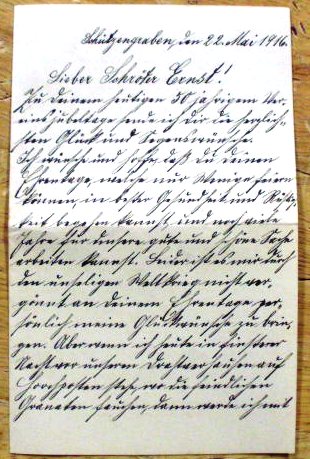 Schützengraben, den 22. Mai 1916.
Lieber Schröter Ernst!
Zu deinem heutigen 30 jährigem Ver-
einsjubeltage sende ich dir die herzlich-
sten Glück und Segenswünsche.
Ich wünsche und hoffe, daß du deinen
Ehrentage, welche nur Wenige feiern
können, in bester Gesundheit und Rüstig-
keit begehen kannst, und noch viele
Jahre für unsere gute und schöne Sache
arbeiten kannst. Leider ist es mir durch
den unseligen Weltkrieg nicht ver-
gönnt an deinem Ehrentage per-
sönlich meine Glückwünsche zu brin-
gen. Aber wenn ich heute in finsterer
Nacht vor unserem Drahtverhauen auf
Horchposten stehe, wo die feindlichen
Granaten fauchen, dann werde ich mit